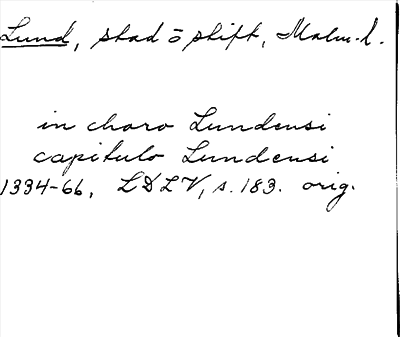 Lund, stad o stift, Malm. l.
in choro Lundensi
capitulo Lundensi
1334-66, LDLV, s. 183. orig.